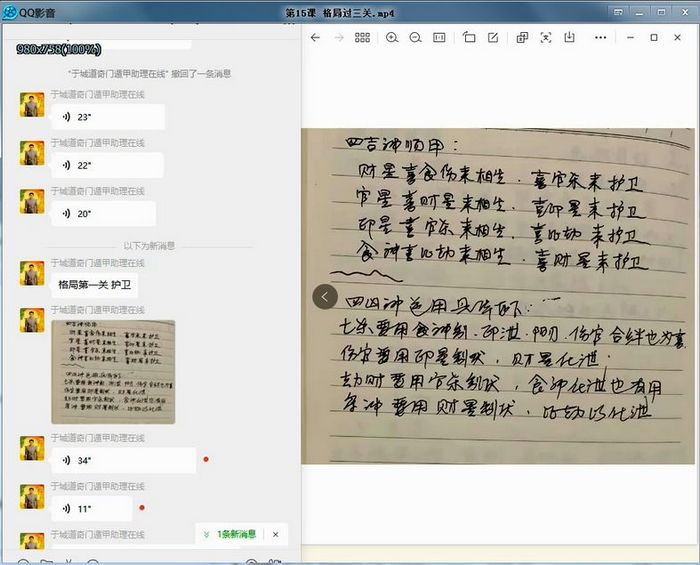 QQ影音
第15课 格局过三关.mp4
980x758(100%)
"于城道奇门遁甲助理在线" 撤回了一条消息
于城道奇门遁甲助理在线
23"
于城道奇门遁甲助理在线
22"
于城道奇门遁甲助理在线
20"
以下为新消息
于城道奇门遁甲助理在线
格局第一关 护卫
于城道奇门遁甲助理在线
于城道奇门遁甲助理在线
34"
于城道奇门遁甲助理在线
11"
于城道奇门遁甲助理在线
1条新消息
四吉神顺用:
财星喜食伤来相生,喜官杀来护卫
官星喜财星来相生,喜印星来护卫
印星喜官杀来相生,喜比劫来护卫
食神喜比劫来相生,喜财星来护卫
四凶神逆用具体如下:
七杀要用食神制,印泄,阳刃,伤官合绊也为喜
伤官要用印星制伏,财星化泄
劫财要用官杀制伏,食神化泄也有用
枭神要用财星制伏,比劫以化泄